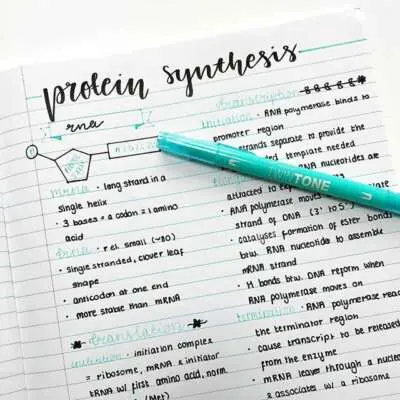 protein synthesis
rna
P
mrna · long strand in a
single helix
· 3 bases = a codon = 1 amino
acid
trna · rel. small (~80)
· single stranded, clover leaf
shape
· anticodon at one end
· more stable than mRNA
translation
initiation · initiation complex
= ribosome, mRNA & initiator
tRNA w/ first amino acid, norm.
(Met)
transcription
initiation · RNA polymerase binds to
promoter region
strands separate to provide the
template needed
RNA nucleotides are
attracted to
· RNA polymerase moves
strand of DNA (3' to 5')
· catalyses formation of ester bonds
btw. RNA nucleotides to assemble
mRNA strand
· H bonds btw. DNA reform when
RNA polymerase moves on
termination · RNA polymerase reac
the terminator region
· cause transcript to be released
from the enzyme
· mRNA leaves through a nucle
& associates w/ a ribosome
TWINTONE